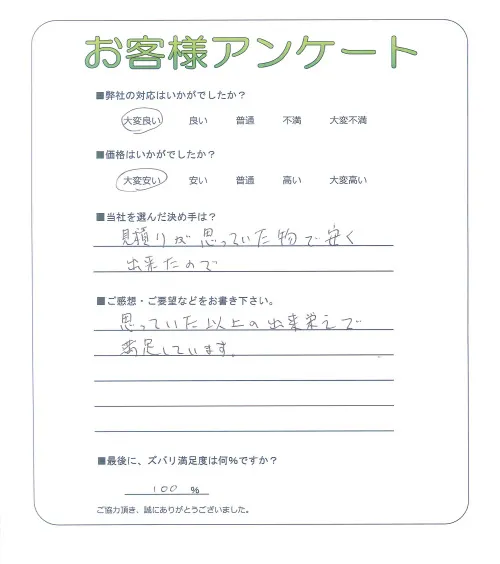 お客様アンケート
■弊社の対応はいかがでしたか？
大変良い 良い 普通 不満 大変不満
■価格はいかがでしたか？
大変安い 安い 普通 高い 大変高い
■当社を選んだ決め手は？
見積りが思っていた物で安く
出来たので
■ご感想・ご要望などをお書き下さい。
思っていた以上の出来栄えで
満足しています。
■最後に、ズバリ満足度は何%ですか？
100 %
ご協力頂き、誠にありがとうございました。